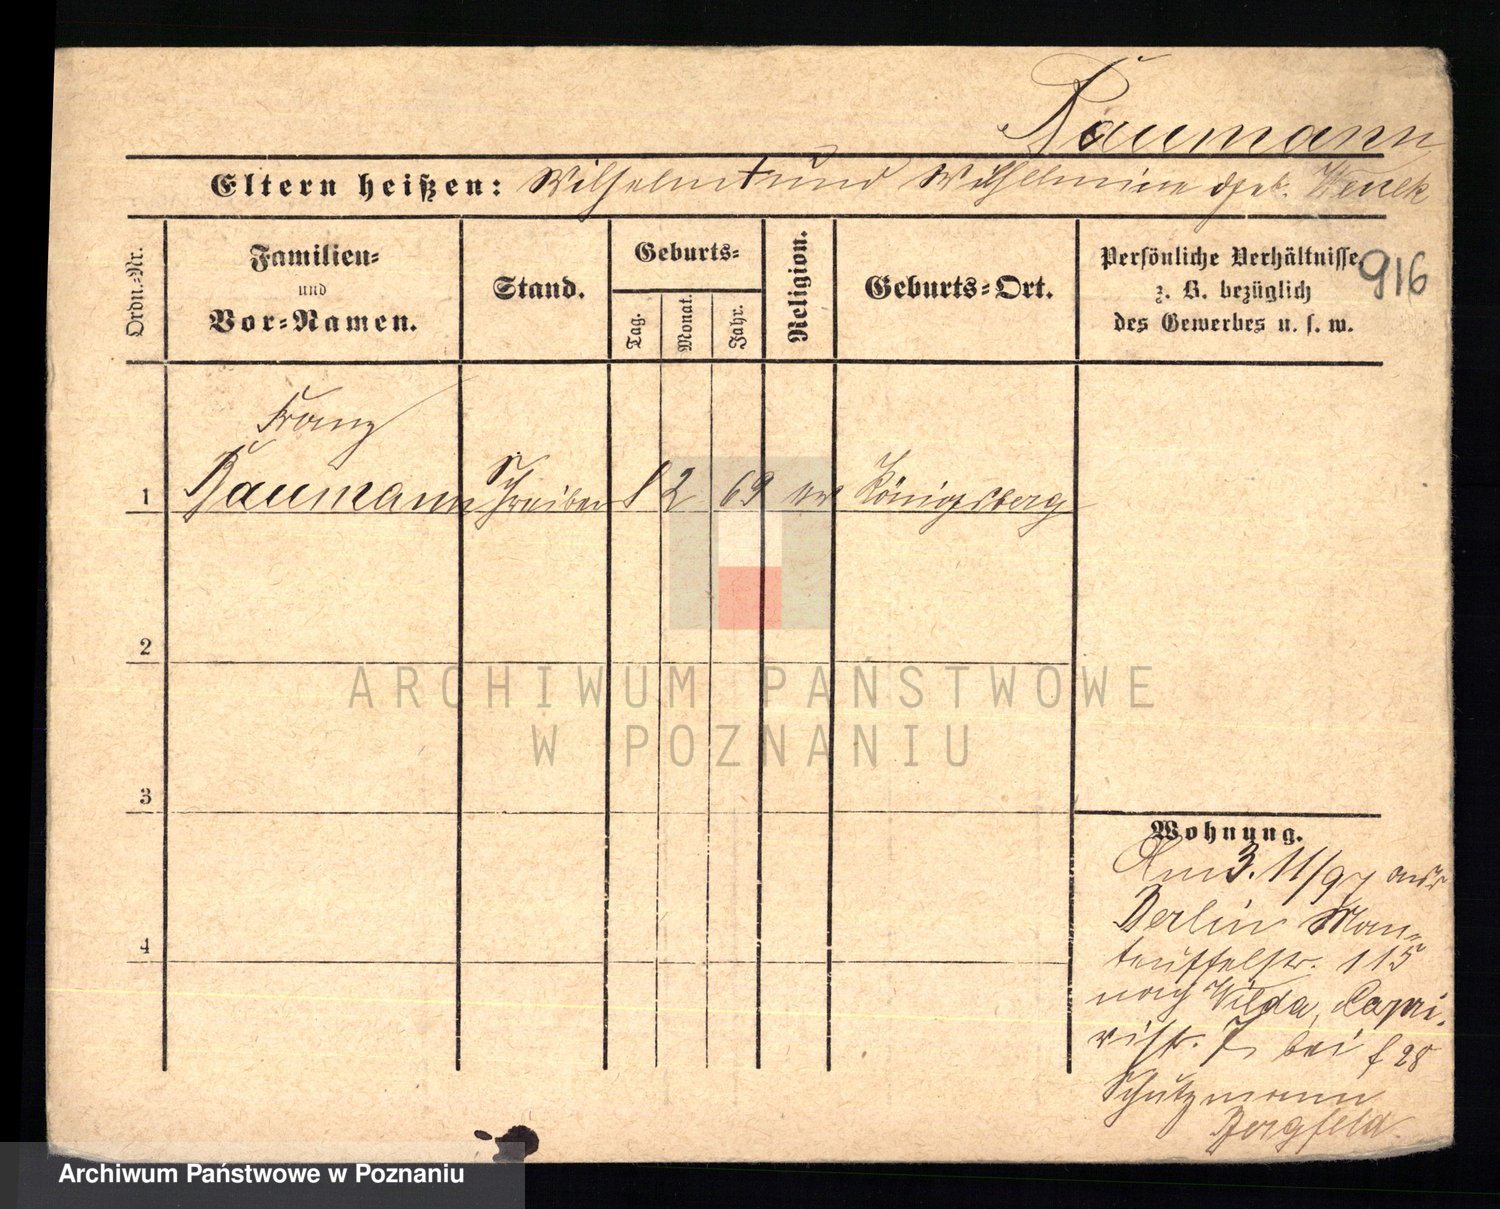 Baumann
Eltern heißen: Wilhelm † und Wilhelmine
916
Ordn.-Nr.
Familien-
und
Vor-Namen.
Stand.
Geburts-
Tag.
Monat.
Jahr.
Religion.
Geburts-Ort.
Persönliche Verhältnisse,
z. B. bezüglich
des Gewerbes u. s. w.
Franz
1 Baumann Schreiber 8 2 69 ev Königsberg
2
3
4
Wohnung.
Am 3. 11/97 aus
Berlin Man-
teuffelstr. 115
nach Wilda, Capri-
vistr. 7 bei f 28
Schutzmann
Bergfeld.
ARCHIWUM PAŃSTWOWE
W POZNANIU
Archiwum Państwowe w Poznaniu